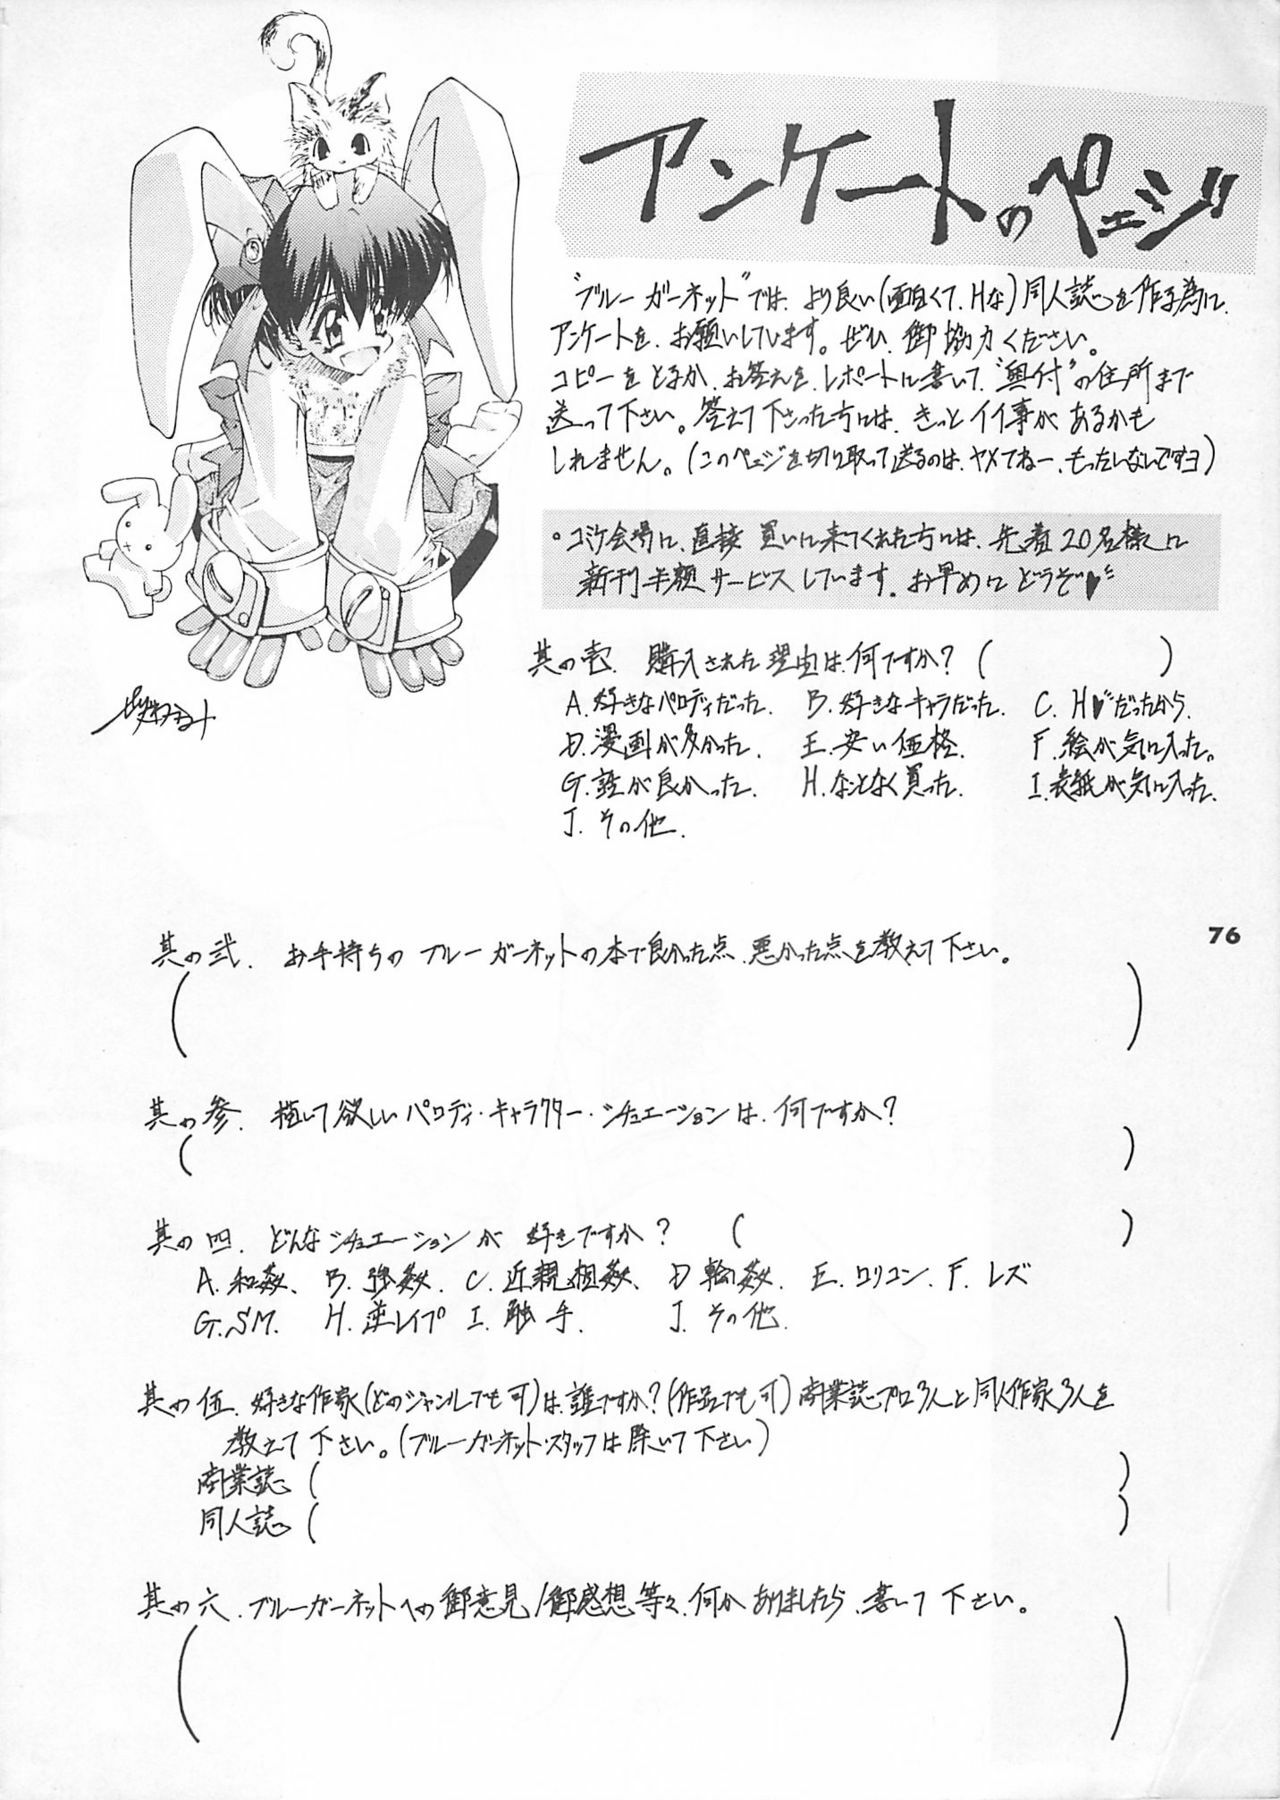 アンケートのページ
"ブルーガーネット"では、より良い(面白くて、Hな)同人誌を作る為に、
アンケートを、お願いしています。ぜひ、御協力ください。
コピーをとるか、お答えを、レポートに書いて、"奥付"の住所まで
送って下さい。答えて下さった方には、きっとイイ事があるかも
しれません。(このページを切り取って送るのは、ヤメてねー、もったいないですヨ)
・コミケ会場に、直接買いに来てくれた方には、先着20名様に
新刊半額サービスしています。お早めにどうぞ♥
其の壱. 購入された理由は、何ですか? (　)
A. 好きなパロディだった. B. 好きなキャラだった. C. H♥だったから.
D. 漫画が多かった. E. 安い価格. F. 絵が気に入った。
G. 話が良かった. H. なんとなく買った. I. 表紙が気に入った.
J. その他.
76
其の弐. お手持ちの ブルーガーネットの本で良かった点、悪かった点を教えて下さい。
(　)
其の参. 描いて欲しいパロディ・キャラクター・シチュエーションは、何ですか?
(　)
其の四. どんなシチュエーションが 好きですか? (　)
A. 和姦、 B. 強姦、 C. 近親相姦、 D 輪姦、 E. ロリコン、 F. レズ
G. SM. H. 逆レイプ I. 触手. J. その他.
其の伍. 好きな作家(どのジャンルでも可)は、誰ですか?(作品でも可) 商業誌プロ3人と同人作家3人を
教えて下さい。(ブルーガーネット・スタッフは除いて下さい)
商業誌 (　)
同人誌 (　)
其の六. ブルーガーネットへの御意見/御感想等々、何かありましたら、書いて下さい。
(　)